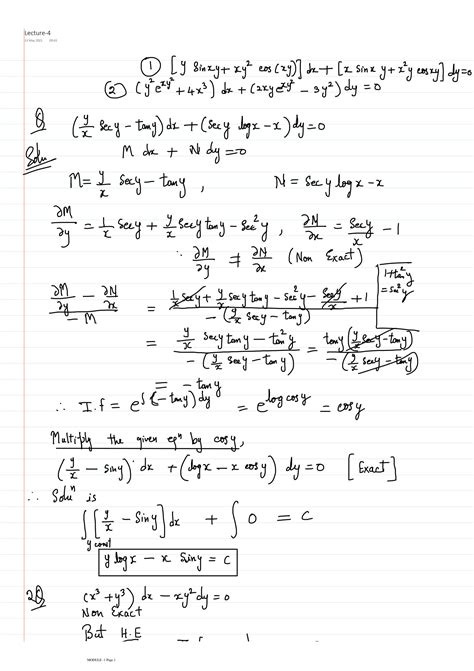 Lecture-4
① [y sin xy + xy² cos (xy)] dx + [x sin xy + x²y cos xy] dy = 0
② (y² e^{xy²} + 4x³) dx + (2xy e^{xy²} - 3y²) dy = 0
Q (y/x sec y - tan y) dx + (sec y log x - x) dy = 0
Soln M dx + N dy = 0
M = y/x sec y - tan y , N = sec y log x - x
∂M/∂y = 1/x sec y + y/x sec y tan y - sec² y , ∂N/∂x = sec y/x - 1
∵ ∂M/∂y ≠ ∂N/∂x (Non Exact)
1+tan² y
= sec² y
(∂M/∂y - ∂N/∂x)/-M = (1/x sec y + y/x sec y tan y - sec² y - sec y/x + 1)/-(y/x sec y - tan y)
= (y/x sec y tan y - tan² y)/-(y/x sec y - tan y) = tan y (y/x sec y - tan y)/-(y/x sec y - tan y)
= - tan y
∴ I.f = e^{∫(-tan y) dy} = e^{log cos y} = cos y
Multiply the given eqⁿ by cos y,
(y/x - sin y) dx + (log x - x cos y) dy = 0 [Exact]
∴ Soluⁿ is
∫[y/x - Sin y] dx + ∫ 0 = C
y const
y log x - x Sin y = C
2Q (x³ + y³) dx - xy² dy = 0
Non Exact
But H.E
MODULE - 1 Page 1